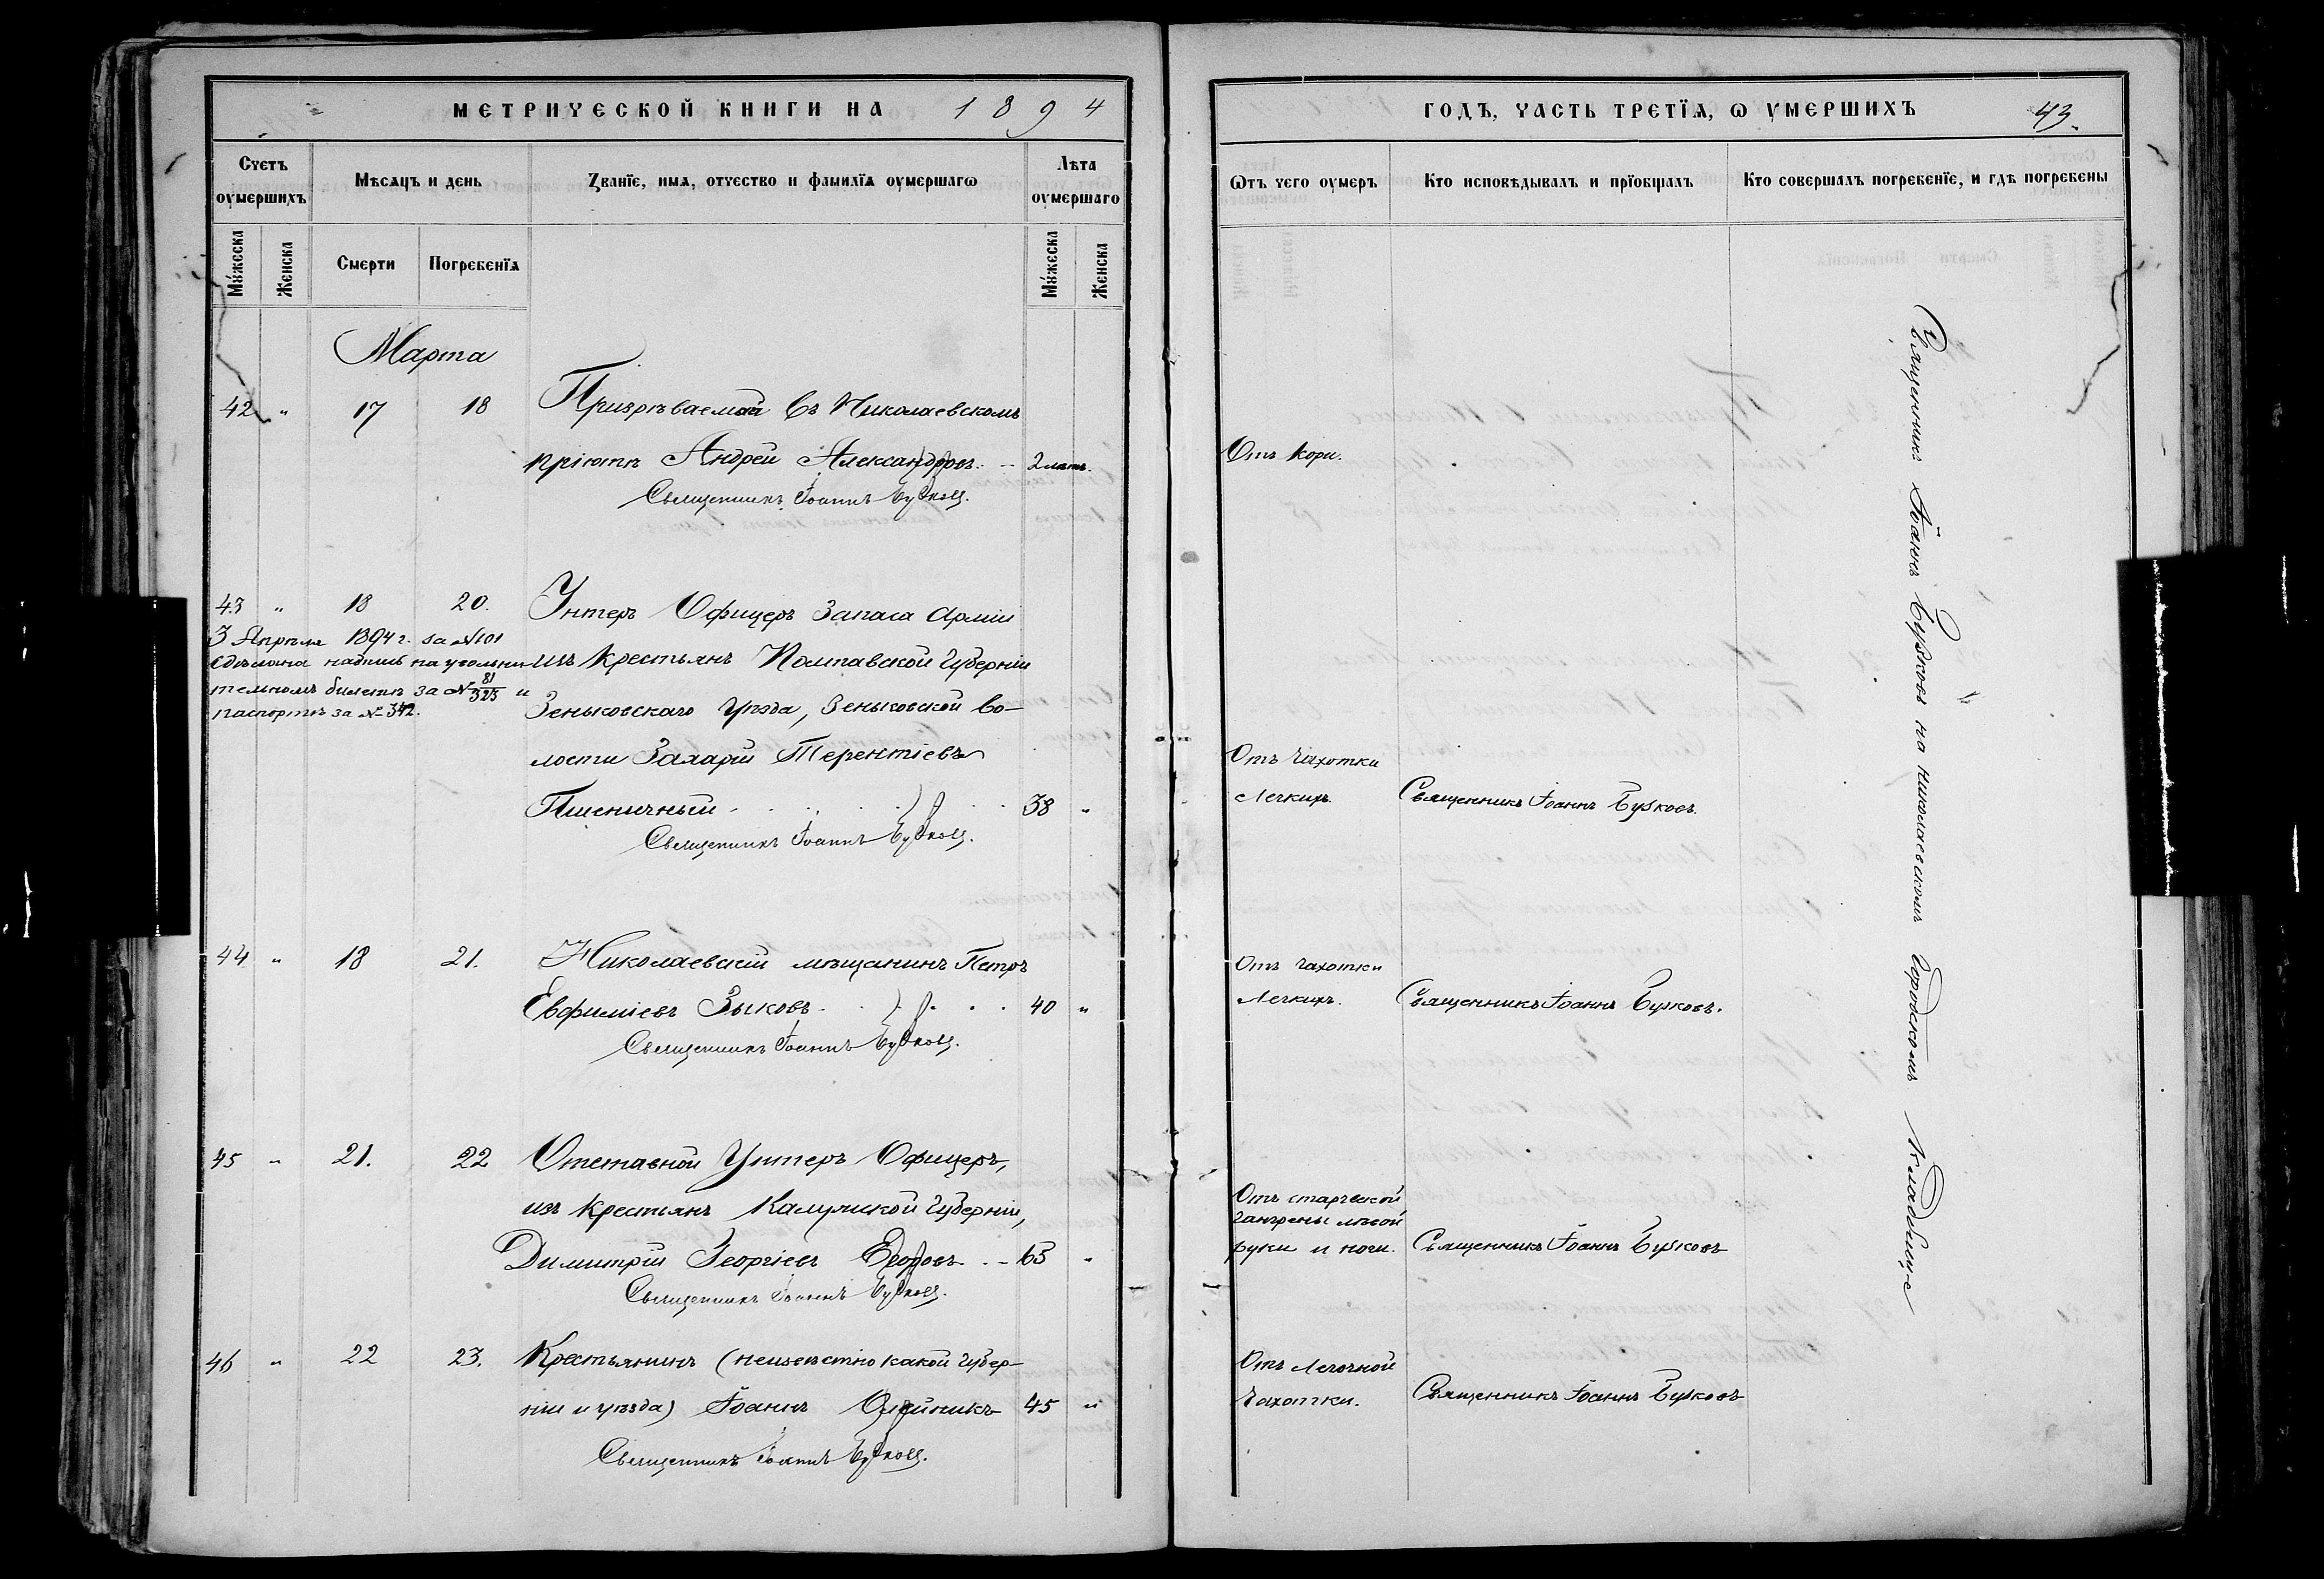 МЕТРИЧЕСКОЙ КНИГИ НА 1894
Счетъ оумершихъ
Мѣсяцъ и день
Званїе, имя, отчество и фамилїя оумершагѡ
Лѣта оумершаго
Мужеска
Женска
Смерти
Погребенїя
Мужеска
Женска
Марта
42 " 17 18 Призрѣваемый въ Николаевскомъ
пріютѣ Андрей Александровъ. - 2 лѣтъ.
Священникъ Іоаннъ
43 " 18 20. Унтеръ Офицеръ Запаса Арміи
3 Апрѣля 1894 г. за №101
сдѣлана надпись на увольни-
тельномъ билетѣ за № 81/323 и
паспортѣ за № 342.
изъ крестьянъ Полтавской Губерніи
Зеньковскаго Уѣзда, Зеньковской во-
лости Захарій Терентіевъ
Пшеничный 38 "
Священникъ Іоаннъ
44 " 18 21. Николаевскій мѣщанинъ Петръ
Евфиміевъ Зыковъ 40 "
Священникъ Іоаннъ
45 " 21. 22 Отставной Унтеръ Офицеръ,
изъ крестьянъ Калужской Губерніи,
Димитрій Георгіевъ Егоровъ - 63 "
Священникъ Іоаннъ
46 " 22 23. Крестьянинъ (неизвѣстно какой губер-
ніи и уѣзда) Іоаннъ Олейникъ 45 "
Священникъ Іоаннъ
ГОДЪ, ЧАСТЬ ТРЕТЇЯ, Ѡ УМЕРШИХЪ 43.
Ѿтъ чего оумеръ
Кто исповѣдывалъ и прїобщалъ
Кто совершалъ погребенїе, и гдѣ погребены
Отъ кори.
Отъ чахотки
Легкихъ. Священникъ Іоаннъ
Отъ чахотки
Легкихъ. Священникъ Іоаннъ
Отъ старческой
гангрены лѣвой
руки и ноги. Священникъ Іоаннъ
Отъ Легочной
Чахотки. Священникъ Іоаннъ
Священникъ Іоаннъ на Николаевскомъ Городскомъ Кладбище